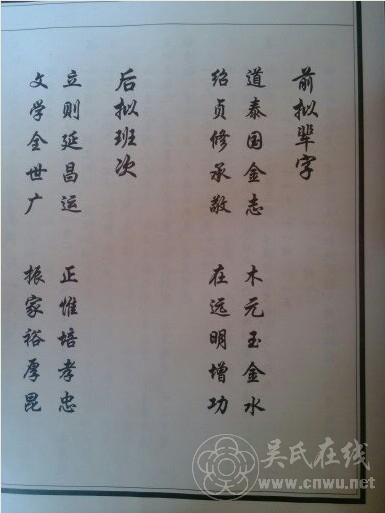 前拟辈字
道泰国金志 木元玉金水
绍贞修承敬 在远明增功
后拟班次
立则延昌运 正惟培孝忠
文学全世广 振家裕厚昆
吴氏在线
www.cnwu.net